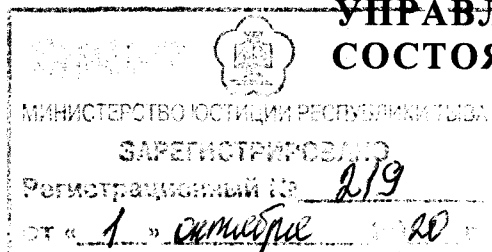 УПРАВЛ
СОСТОЯ
МИНИСТЕРСТВО ЮСТИЦИИ РЕСПУБЛИКИ ТЫВА
ЗАРЕГИСТРИРОВАНО
Регистрационный № 219
от « 1 » октября 2020 г